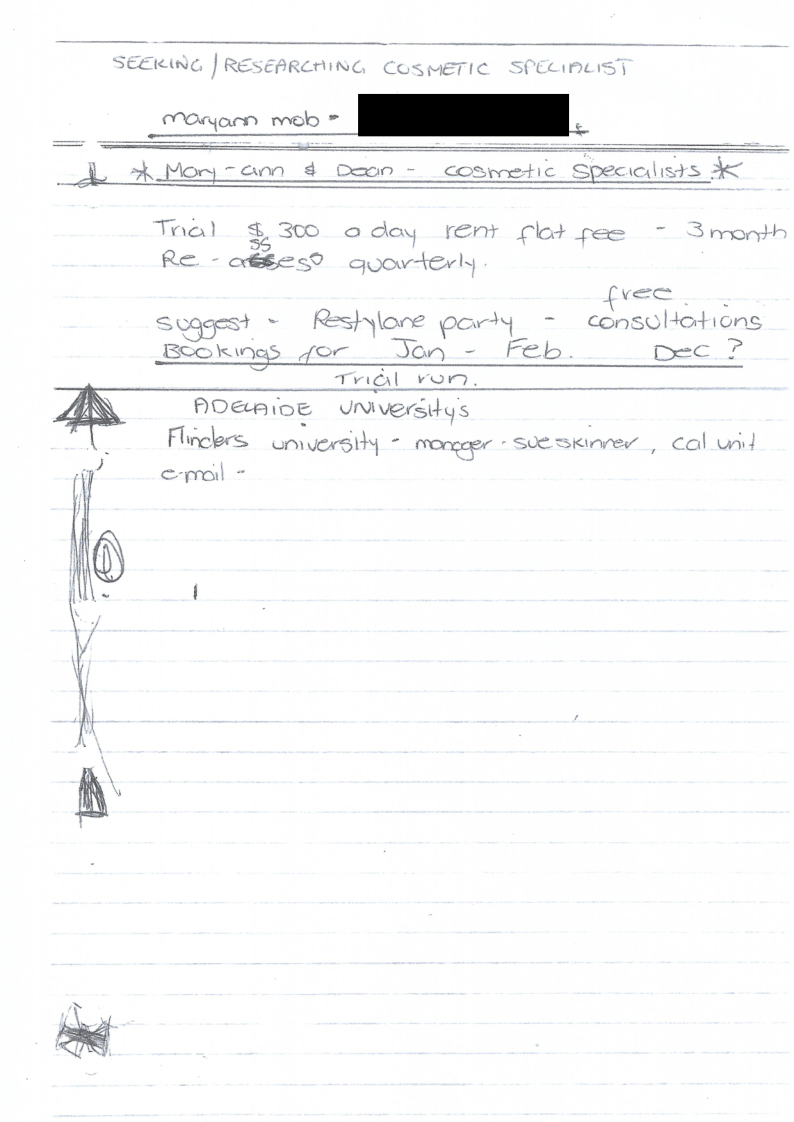 SEEKING / RESEARCHING COSMETIC SPECIALIST
maryann mob -
* Mary-ann & Dean - cosmetic specialists *
Trial $300 a day rent flat fee - 3 month
ss
Re - asses quarterly.
free
suggest - Restylane party - consultations
Bookings for Jan - Feb. Dec ?
Trial run.
ADELAIDE UNIVERSITY's
Flinders university - manager - sue skinner, cal unit
e-mail -